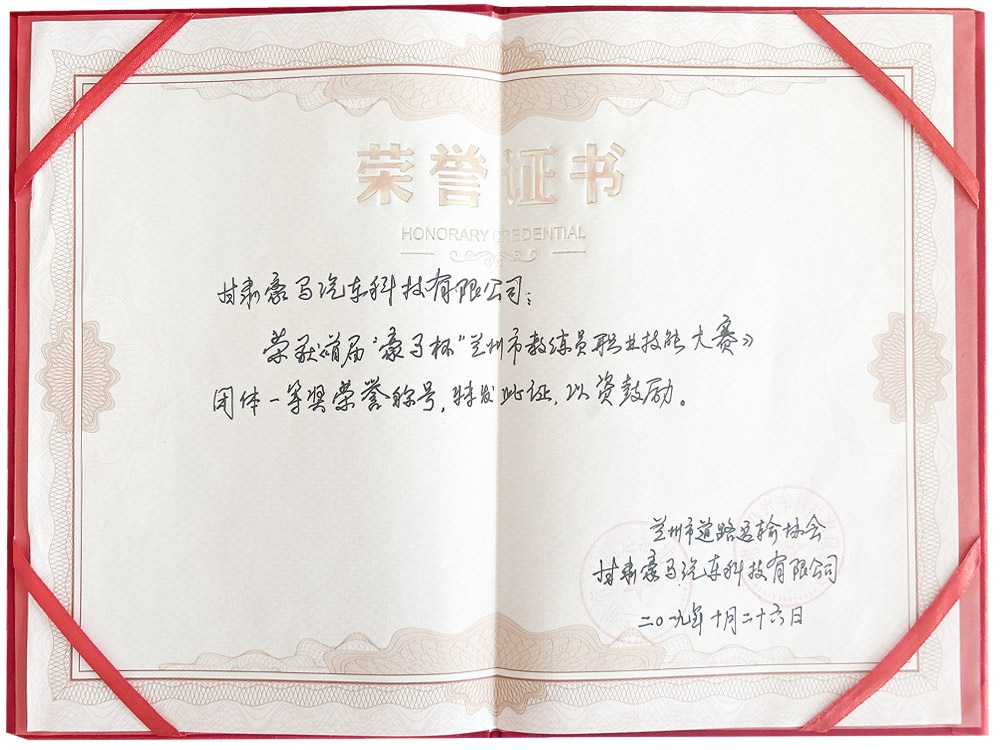 荣誉证书
HONORARY CREDENTIAL
甘肃豪马汽车科技有限公司：
荣获首届“豪马杯”兰州市教练员职业技能大赛》
团体一等奖荣誉称号，特发此证，以资鼓励。
兰州市道路运输协会
甘肃豪马汽车科技有限公司
二〇一九年十月二十六日